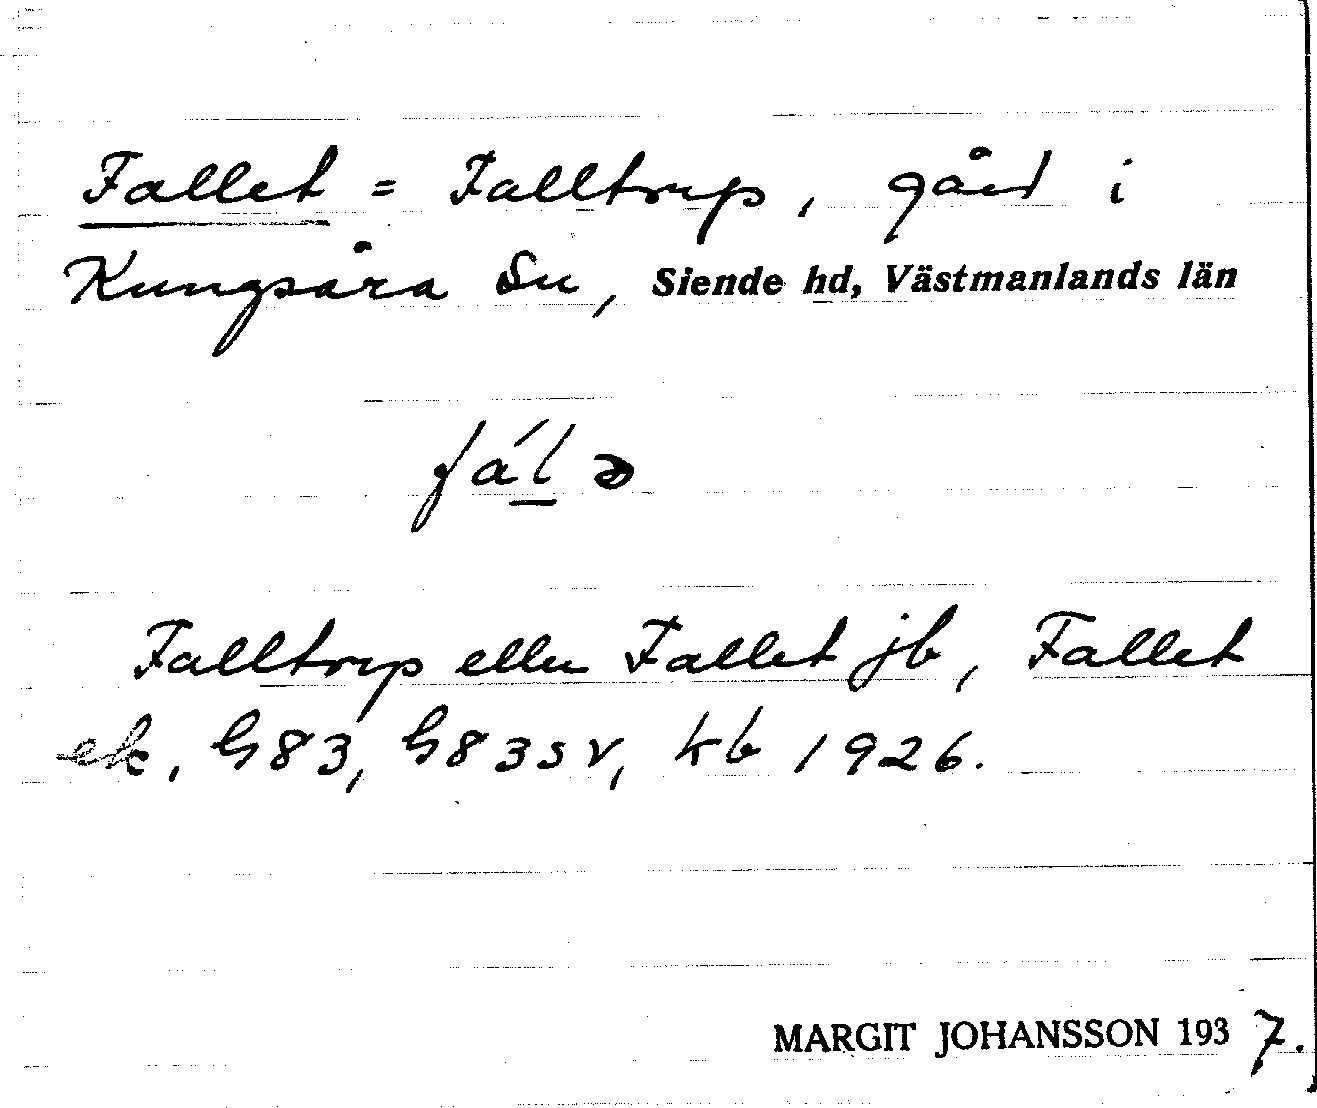 Fallet = Falltrup, gård i
Kungsåra Sn, Siende hd, Västmanlands län
fál̲ə
Falltrup eller Fallet jb, Fallet
ek, G83, G83sv, kb 1926.
MARGIT JOHANSSON 1937.